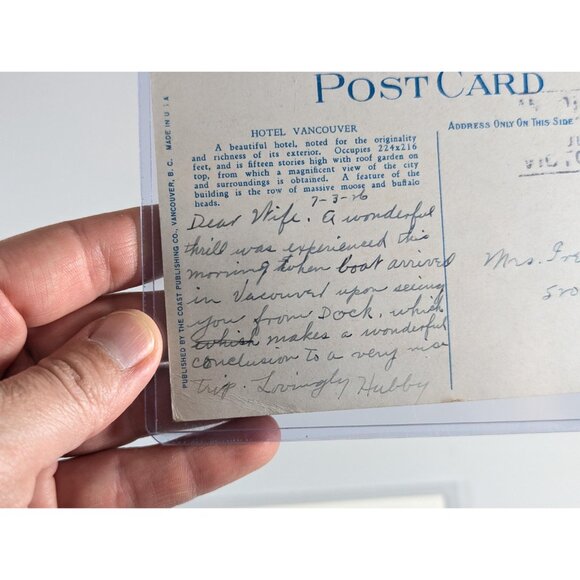 POST CARD
ADDRESS ONLY ON THIS SIDE
HOTEL VANCOUVER
A beautiful hotel, noted for the originality
and richness of its exterior. Occupies 224x216
feet, and is fifteen stories high with roof garden on
top, from which a magnificent view of the city
and surroundings is obtained. A feature of the
building is the row of massive moose and buffalo
heads.
7-3-26
Dear Wife. A wonderful
thrill was experienced this
morning when boat arrived
in Vacouver upon seeing
you from Dock, which
which makes a wonderful
conclusion to a very nice
trip. Lovingly Hubby
Mrs. Fre
PUBLISHED BY THE COAST PUBLISHING CO., VANCOUVER, B. C. MADE IN U S A
VICTO